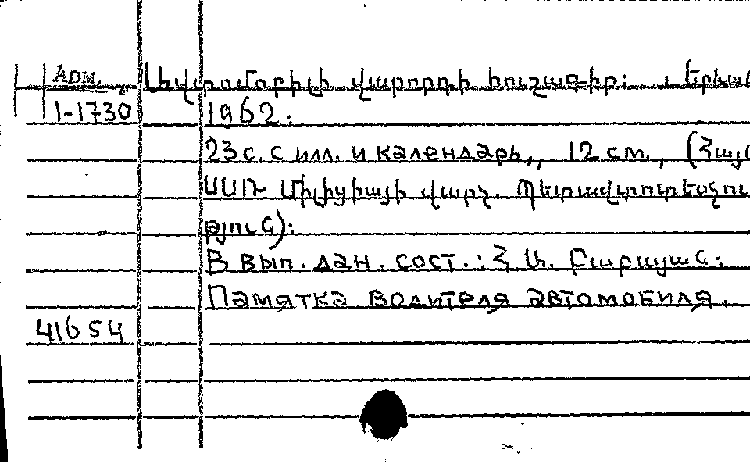 Арм. Ավտոմոբիլի վարորդի հուշագիր: , Երևան
1-1730 1962.
23 с. с илл. и календарь,, 12 см., (Հայ
ՍՍՌ Միլիցիայի վարչ. Պետավտոտեսչու
թյուն):
В вып. дан. сост.: Հ. Ա. Բաբայան:
Памятка водителя автомобиля.
41654